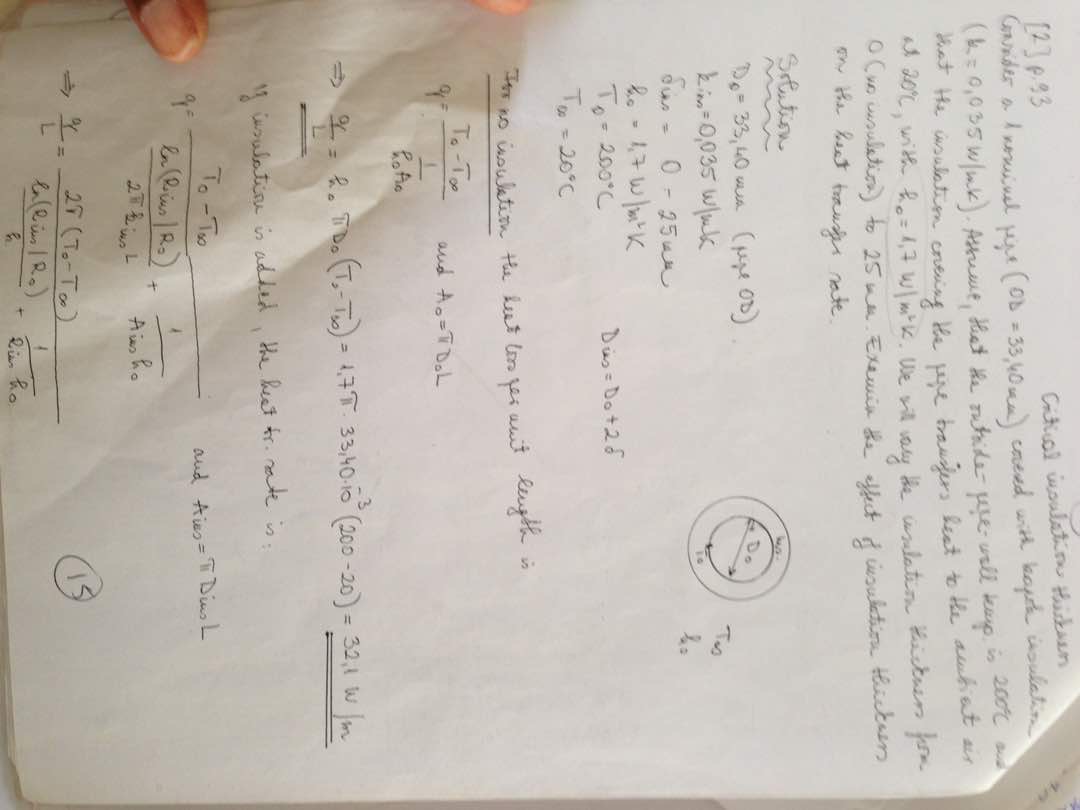 Critical insulation thickness
[2] p.93
Consider a 1 nominal pipe (OD = 33,40 mm) covered with kapok insulation
(k = 0,035 W/mK). Assume, that the outside-pipe-wall temp. is 200°C and
that the insulation covering the pipe transfers heat to the ambient air
at 20°C, with h₀ = 1,7 W/m²K. We will vary the insulation thickness from
0 (no insulation) to 25 mm. Examin the effect of insulation thickness
on the heat transfer rate.
Solution
D₀ = 33,40 mm (pipe OD)
kins = 0,035 W/mK
δins = 0 - 25 mm
h₀ = 1,7 W/m²K
T₀ = 200°C
T∞ = 20°C
Dins = D₀ + 2δ
ins.
D₀
T₀
T∞
h₀
For no insulation the heat loss per unit length is
q = (T₀ - T∞) / (1 / h₀A₀) and A₀ = πD₀L
⇒ q/L = h₀ πD₀ (T₀ - T∞) = 1,7π · 33,40·10⁻³ (200 - 20) = 32,1 W/m
If insulation is added, the heat tr. rate is:
q = (T₀ - T∞) / (ln(Rins/R₀) / 2πkinsL + 1 / Ains h₀) and Ains = πDinsL
⇒ q/L = 2π(T₀ - T∞) / (ln(Rins/R₀) / k + 1 / Rins h₀)
15